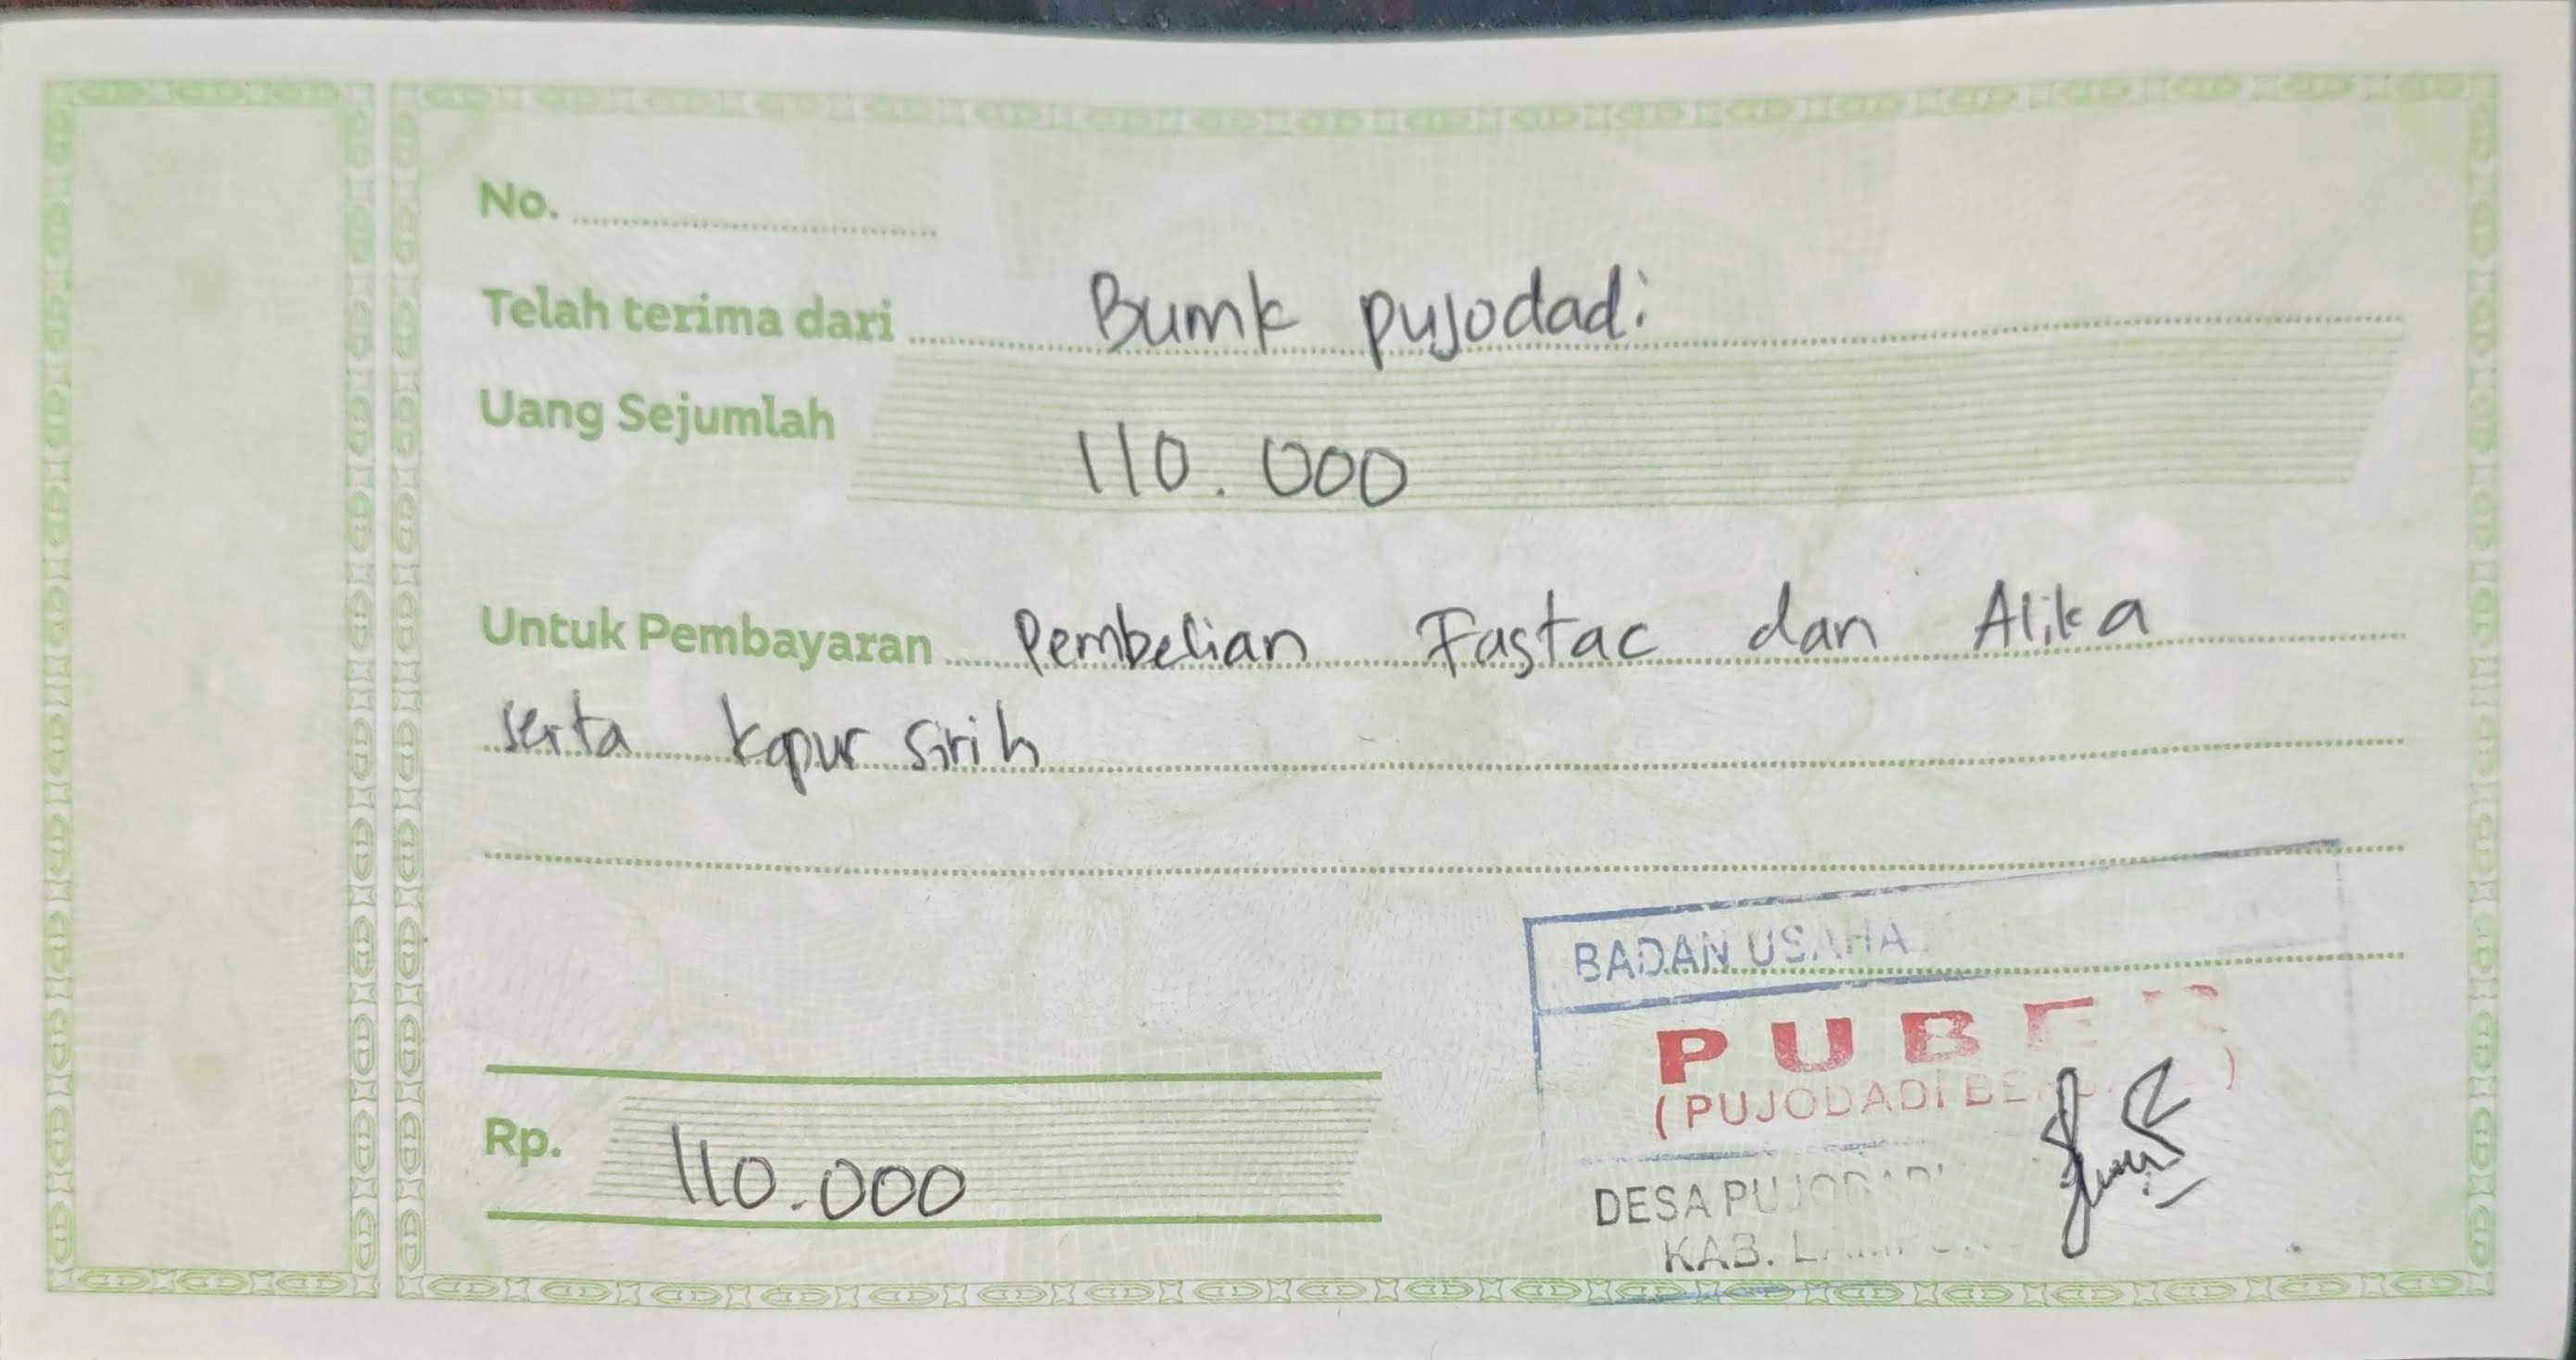 No.
Telah terima dari Bumk pujodadi
Uang Sejumlah 110.000
Untuk Pembayaran Pembelian Fastac dan Alika
serta kapur sirih
BADAN USAHA
PUBER
(PUJODADI
Rp. 110.000
DESA PUJODADI
KAB.